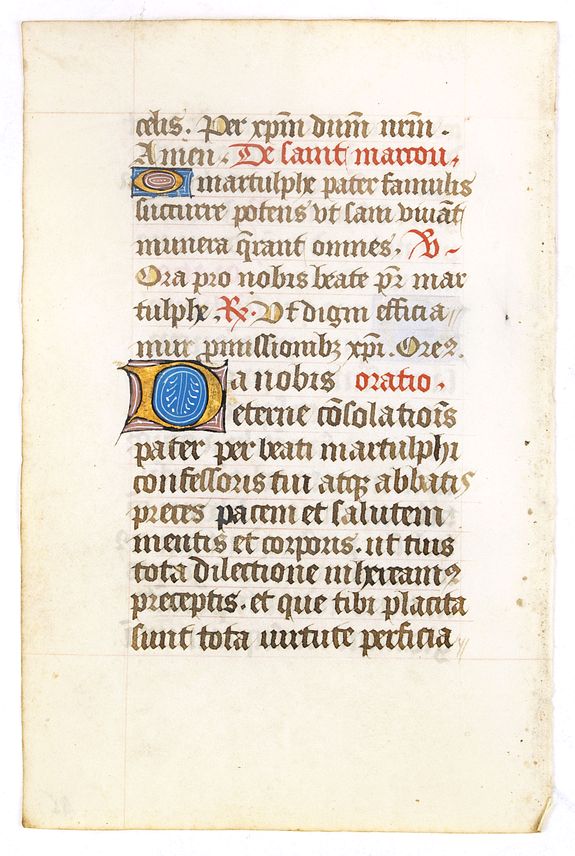 celis. Per xp̄m dūm nr̄m.
Amen. De saint marcou.
O martulphe pater famulis
succurre potens vt sani viuāt
munera q̄rant omnes. V
Ora pro nobis beate pr̄ mar
tulphe. R. Vt digni efficia
mur pmissionibꝫ xp̄i. Oreꝰ.
Da nobis oratio.
eterne cōsolatiōis
pater per beati martulphi
confessoris tui atqꝫ abbatis
preces pacem et salutem
mentis et corporis. ut tuis
tota dilectione inhereamꝰ
preceptis. et que tibi placita
sunt tota uirtute perficia